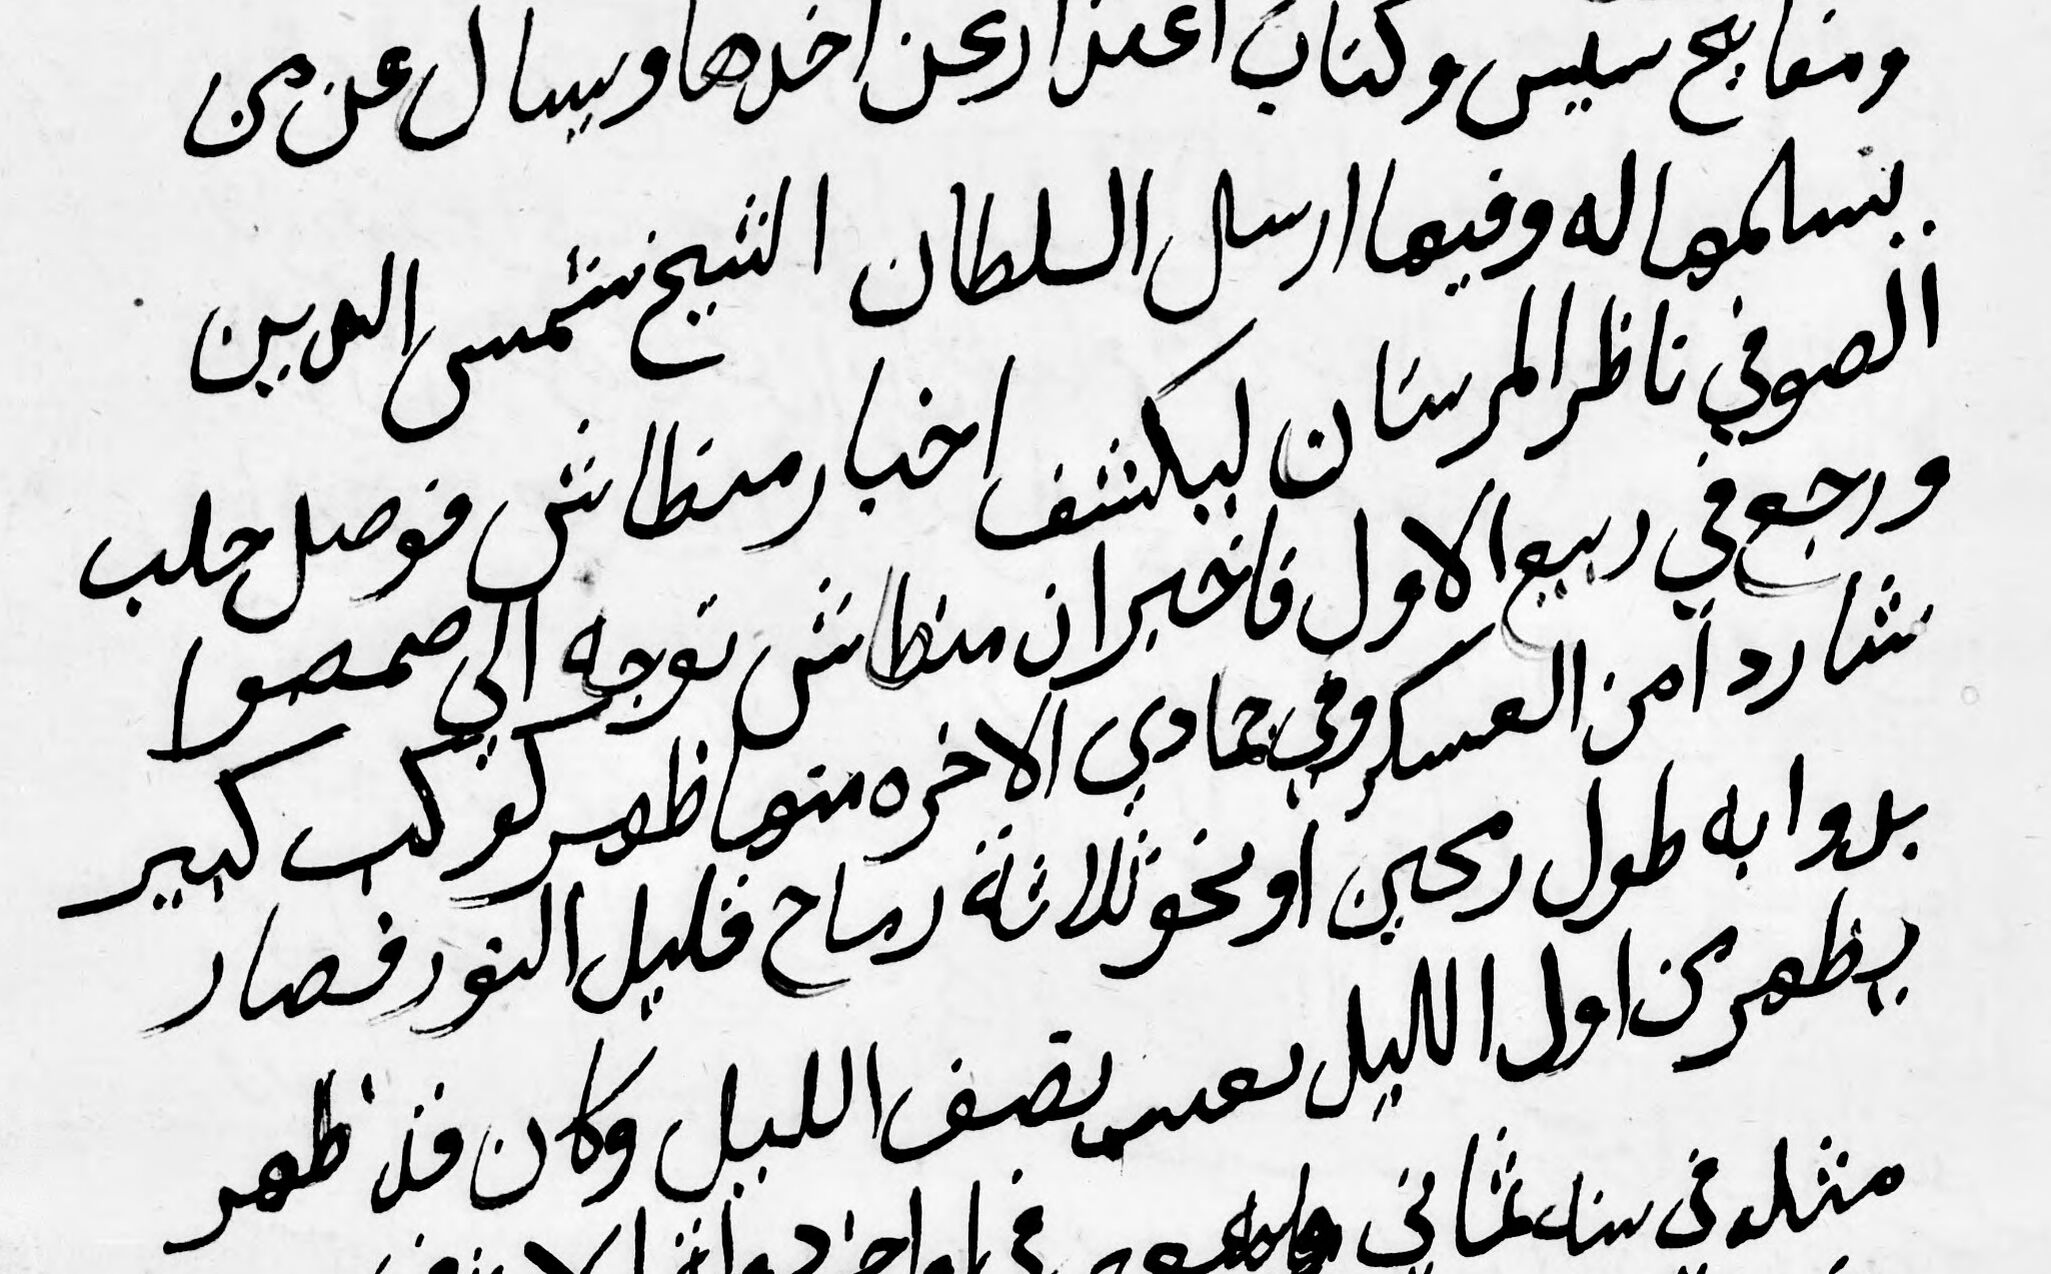 ومفاتيح سيس وكتاب اعتذار عن اخدها ويسال عن من
يتسلمها له وفيها ارسل السلطان الشيخ شمس الدين
الصوفي ناظر المرستان ليكشف اخبار منطاش فوصل حلب
ورجع في ربيع الاول فاخبر ان منطاش توجه الي صمصوا
شاردا من العسكر وفي جمادي الاخره منها ظهر كوكب كبير
بدوابه طول رمحين او نحو ثلاثة رماح قليل النور فصار
يظهر من اول الليل نصف الليل وكان قد ظهر
مثله في سنه ثماني في اواخر دولة الاشرف